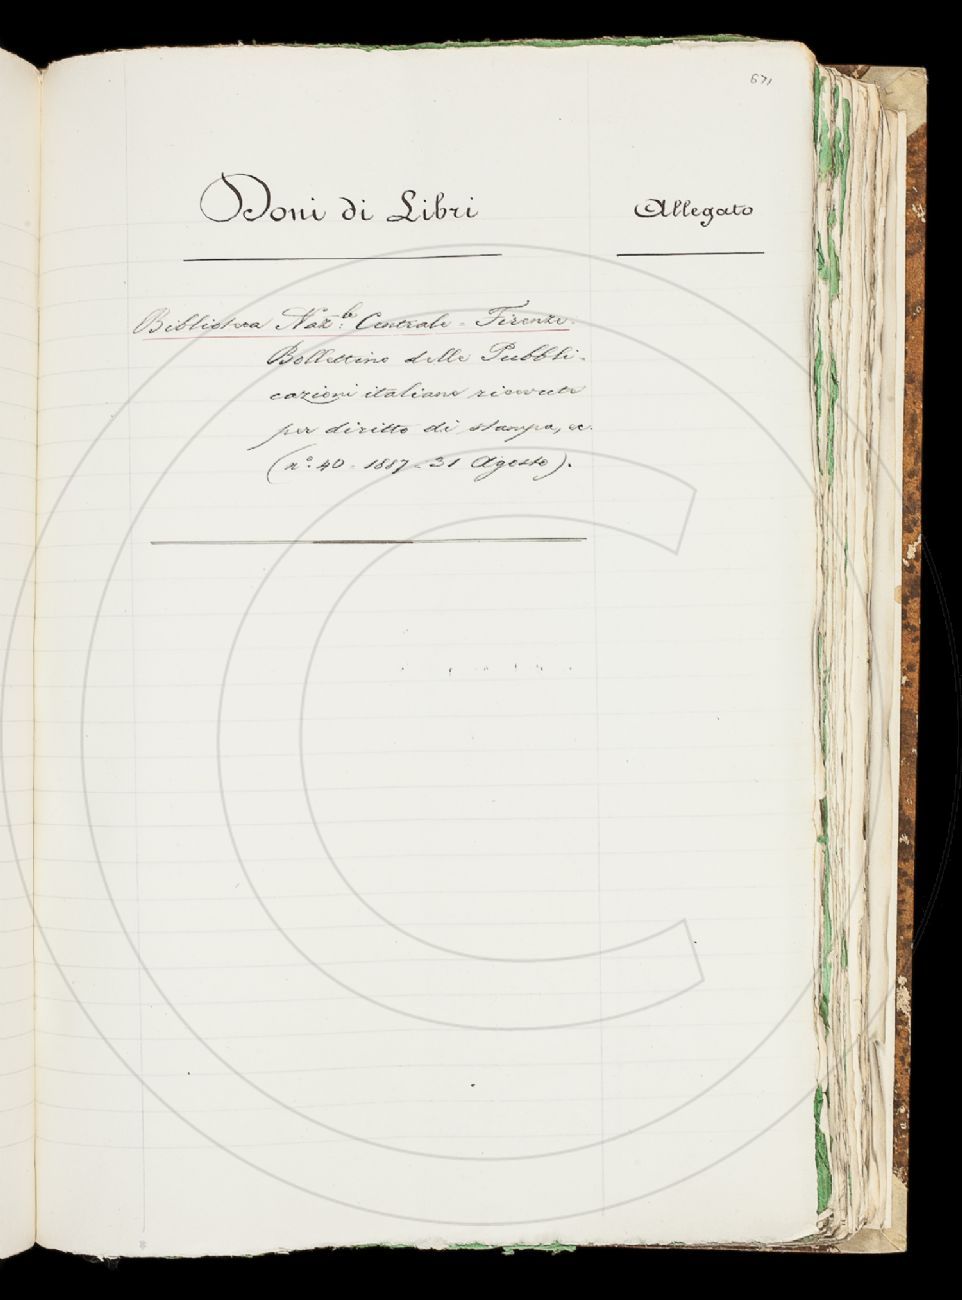 671
Doni di Libri
Allegato
Biblioteca Naz.le Centrale - Firenze.
Bollettino delle Pubbli-
cazioni italiane ricevute
per diritto di stampa, ec.
(n.° 40 - 1887 - 31 Agosto).